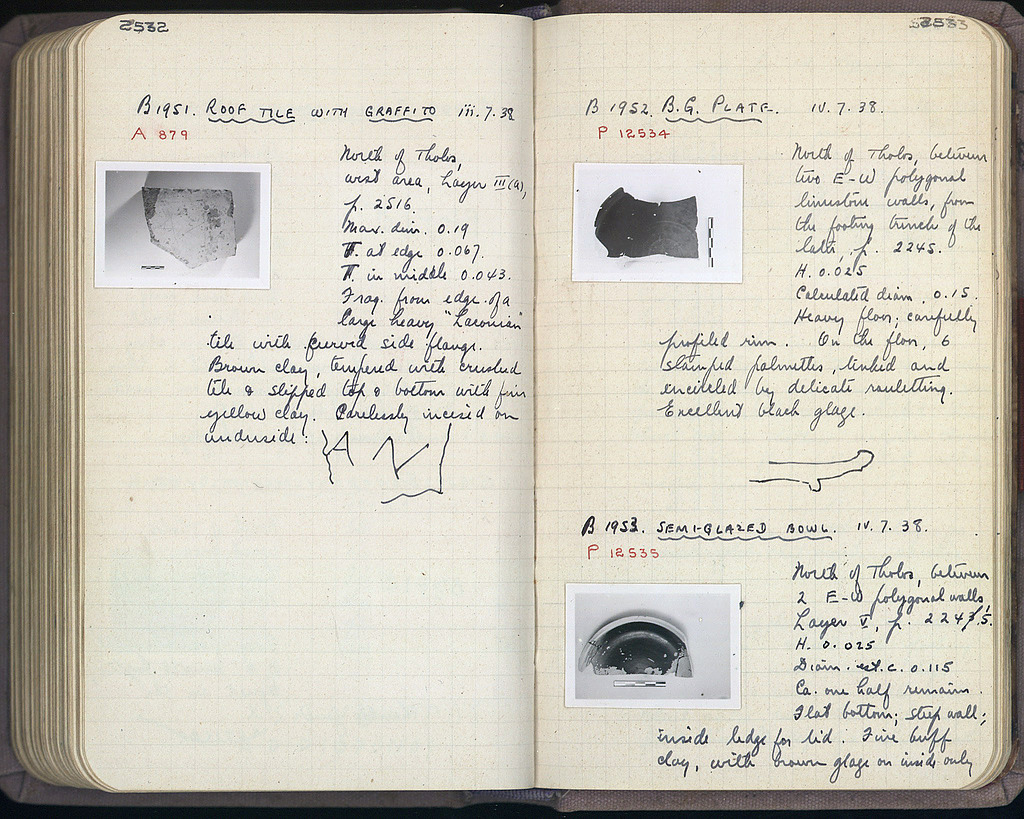 2532
B 1951. ROOF TILE WITH GRAFFITO iii.7.38
A 879
North of Tholos,
west area, Layer III(a),
p. 2516.
Max. dim. 0.19
T. at edge 0.067.
T. in middle 0.043.
Frag. from edge of a
large heavy "Laconian"
tile with curved side flange.
Brown clay, tempered with crushed
tile & slipped top & bottom with fine
yellow clay. Carelessly incised on
underside:
A N
2533
B 1952. B.G. PLATE. IV.7.38.
P 12534
North of Tholos, between
two E-W polygonal
limestone walls, from
the footing trench of the
latter, p. 2245.
H. 0.025
Calculated diam. 0.15.
Heavy floor; carefully
profiled rim. On the floor, 6
stamped palmettes, linked and
encircled by delicate rouletting.
Excellent black glaze.
B 1953. SEMI-GLAZED BOWL. IV.7.38.
P 12535
North of Tholos, between
2 E-W polygonal walls,
Layer V, p. 2245.
H. 0.025
Diam. est. c. 0.115
Ca. one half remains.
Flat bottom; steep wall;
inside ledge for lid. Fine buff
clay, with brown glaze on inside only